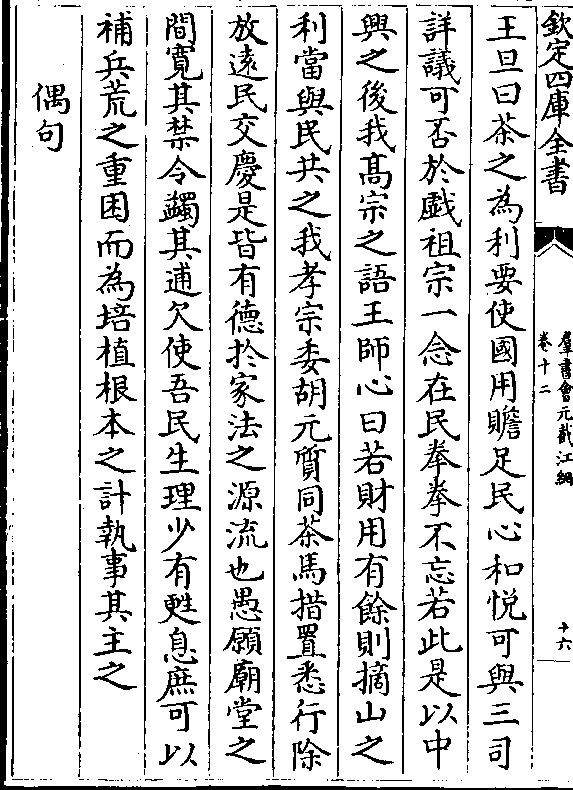 欽定四庫全書
羣書會元截江綱
卷十二
十六
王旦曰茶之為利要使國用贍足民心和悅可與三司
詳議可否於戲祖宗一念在民拳拳不忘若此是以中
興之後我髙宗之語王師心曰若財用有餘則摘山之
利當與民共之我孝宗委胡元質同茶馬措置悉行除
放逺民交慶是皆有德扵家法之源流也愚願廟堂之
間寛其禁令蠲其逋欠使吾民生理少有甦息庶可以
補兵荒之重困而為培植根本之計執事其主之
偶句